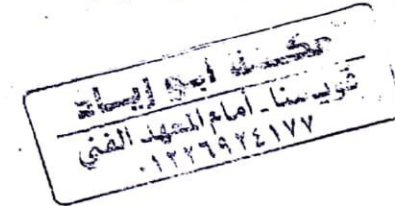 مكتب ابو زياد
قويسنا - أمام المعهد الفني
٠١٢٢٦٩٢٤١٧٧